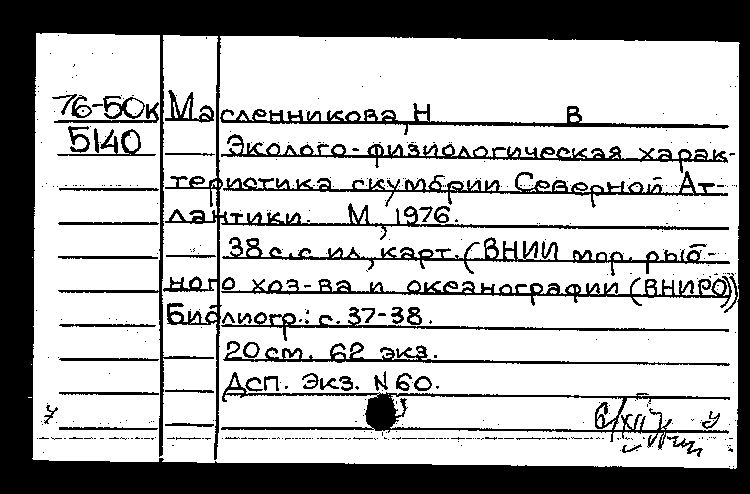 76-50к Масленникова, Н В
5140 Эколого-физиологическая харак-
теристика скумбрии Северной Ат-
лантики. М., 1976.
38 с. с ил., карт. (ВНИИ мор. рыб-
ного хоз-ва и океанографии (ВНИРО))
Библиогр.: с. 37-38.
20 см. 62 экз.
Дсп. Экз. N 60.
6/XII